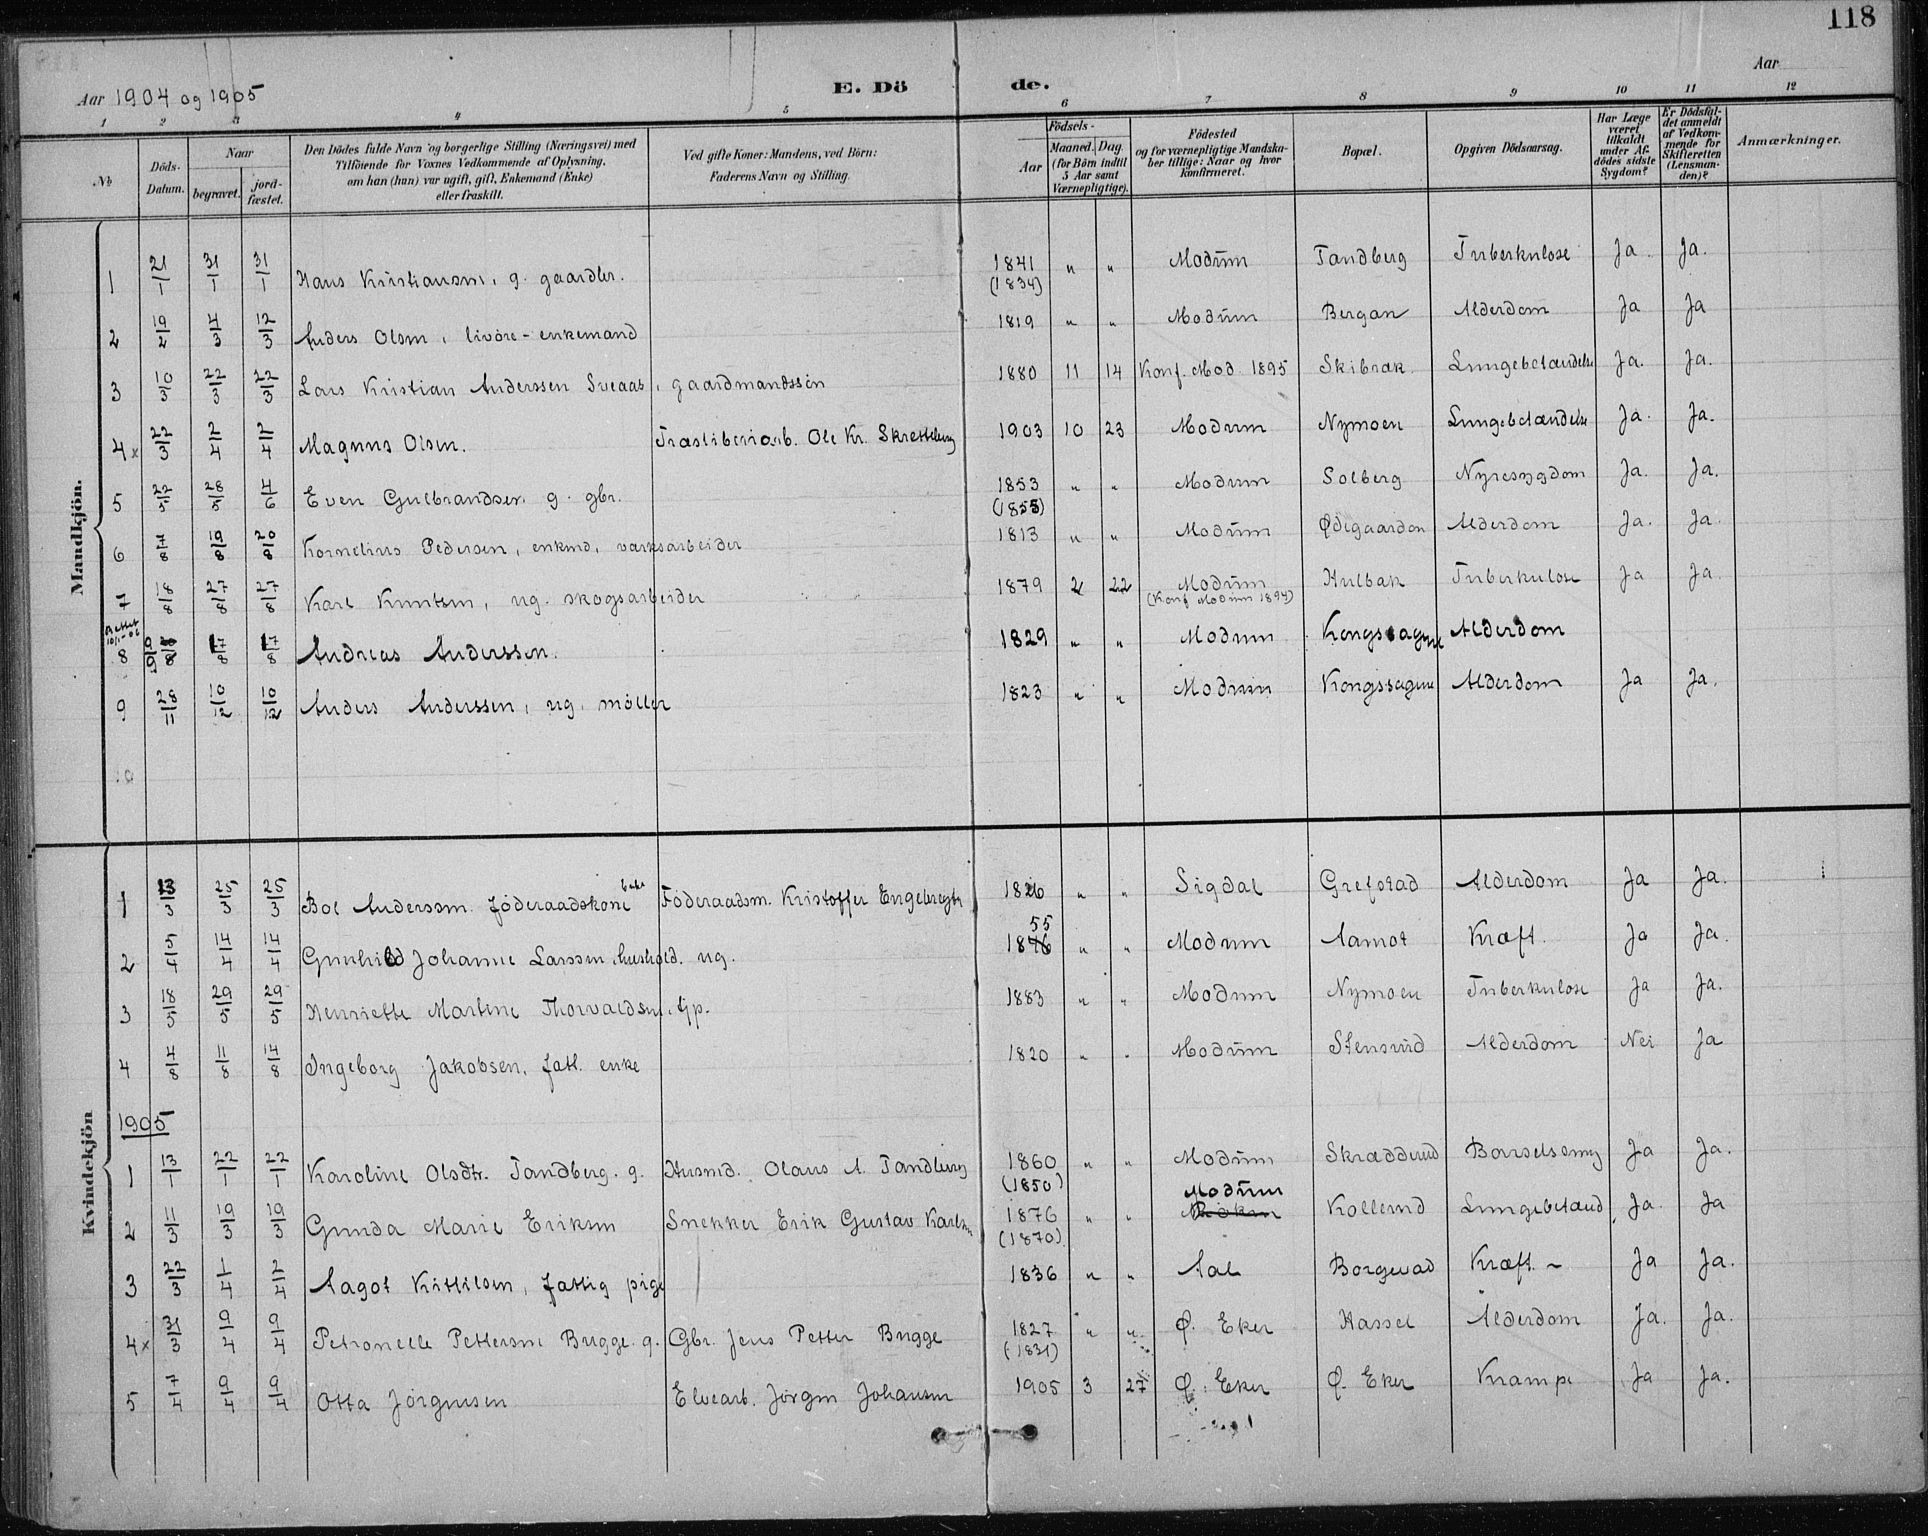 118
Aar 1904 og 1905 E. Dö de. Aar
1 2 3 4 5 6 7 8 9 10 11 12
No
Döds-Datum.
Naar begravet. jord-fæstet.
Den Dödes fulde Navn og borgerlige Stilling (Næringsvei) med Tilföiende for Voxnes Vedkommende af Oplysning, om han (hun) var ugift, gift, Enkemand (Enke) eller fraskilt.
Ved gifte Koner: Mandens, ved Börn: Faderens Navn og Stilling.
Födsels-
Aar Maaned. Dag. (for Börn indtil 5 Aar samt Værnepligtige).
Födested og for værnepligtige Mandskaber tillige: Naar og hvor Konfirmeret.
Bopæl.
Opgiven Dödsaarsag.
Har Læge været tilkaldt under Afdödes sidste Sygdom?
Er Dödsfaldet anmeldt af Vedkommende for Skifteretten (Lensmanden)?
Anmærkninger.
Mandkjön.
1 21/1 31/1 31/1 Hans Kristiansen, g. gaardbr. 1841 (1834) " " Modum Tandberg Tuberkulose Ja. Ja.
2 19/2 4/3 12/3 Anders Olsen, livøre-enkemand 1819 " " Modum Bergan Alderdom Ja Ja
3 10/3 22/3 22/3 Lars Kristian Anderssen Sveaas, gaardmandssön 1880 11 14 Konf. Mod. 1895 Skibrak Lungebetændelse Ja. Ja.
4x 22/3 2/4 2/4 Magnus Olsen. Træsliberiarb. Ole Kr. Skretteberg 1903 10 23 Modum Nymoen Lungebetændelse Ja. Ja.
5 22/5 28/5 4/6 Even Gulbrandsen g. gbr. 1853 (1855) " " Modum Solberg Nyresygdom Ja. Ja.
6 7/8 19/8 20/8 Kornelius Pedersen, enkmd, værksarbeider 1813 " " Modum Ødegaarden Alderdom Ja. Ja.
7 18/8 27/8 27/8 Karl Knutsen, ug. skogsarbeider 1879 2 22 Modum (Konf. Modum 1894) Hulbak Tuberkulose Ja Ja.
8 17/8 17/8 Andreas Anderssen. 1829 " " Modum Kongssagene Alderdom
9 28/11 10/12 10/12 Anders Anderssen, ug. møller 1823 " " Modum Kongssagene Alderdom Ja Ja.
10
Kvindekjön
1 13/3 25/3 25/3 Boe Anderssen föderaadskone Föderaadsm. Kristoffer Engebregts 1826 " " Sigdal Grefstad Alderdom Ja Ja.
2 5/4 14/4 14/4 Gunhild Johanne Larssen hushold. ug. 55 1846 " " Modum Aamot Kræft. Ja Ja.
3 18/5 29/5 29/5 Henriette Martine Thorvaldsen. tjp. 1883 " " Modum Nymoen Tuberkulose Ja Ja.
4 4/8 11/8 14/8 Ingeborg Jakobsen, fatt. enke 1820 " " Modum Stensrud Alderdom Nei Ja
1905
1 13/1 22/1 22/1 Karoline Olsdtr. Tandberg. g. Husmd. Olaus A. Tandberg 1860 (1850) " " Modum Skrædderud Barselseng Ja Ja.
2 11/3 19/3 19/3 Gunda Marie Eriksen Snekker Erik Gustav Karlsen 1876 (1870) " " Modum Kollerud Lungebetænd. Ja. Ja
3 22/3 1/4 2/4 Aagot Kittilsen, fattig pige 1836 " " Aal Borgerad Kræft Ja Ja.
4x 31/3 9/4 9/4 Petronelle Pettersen Bugge. g. Gbr. Jens Petter Bugge 1827 (1831) " " Ø. Eker Hassel Alderdom Ja. Ja.
5 7/4 9/4 9/4 Otta Jörgensen Elvearb. Jörgen Johansen 1905 3 27 Ø. Eker Ø. Eker Krampe Ja Ja.